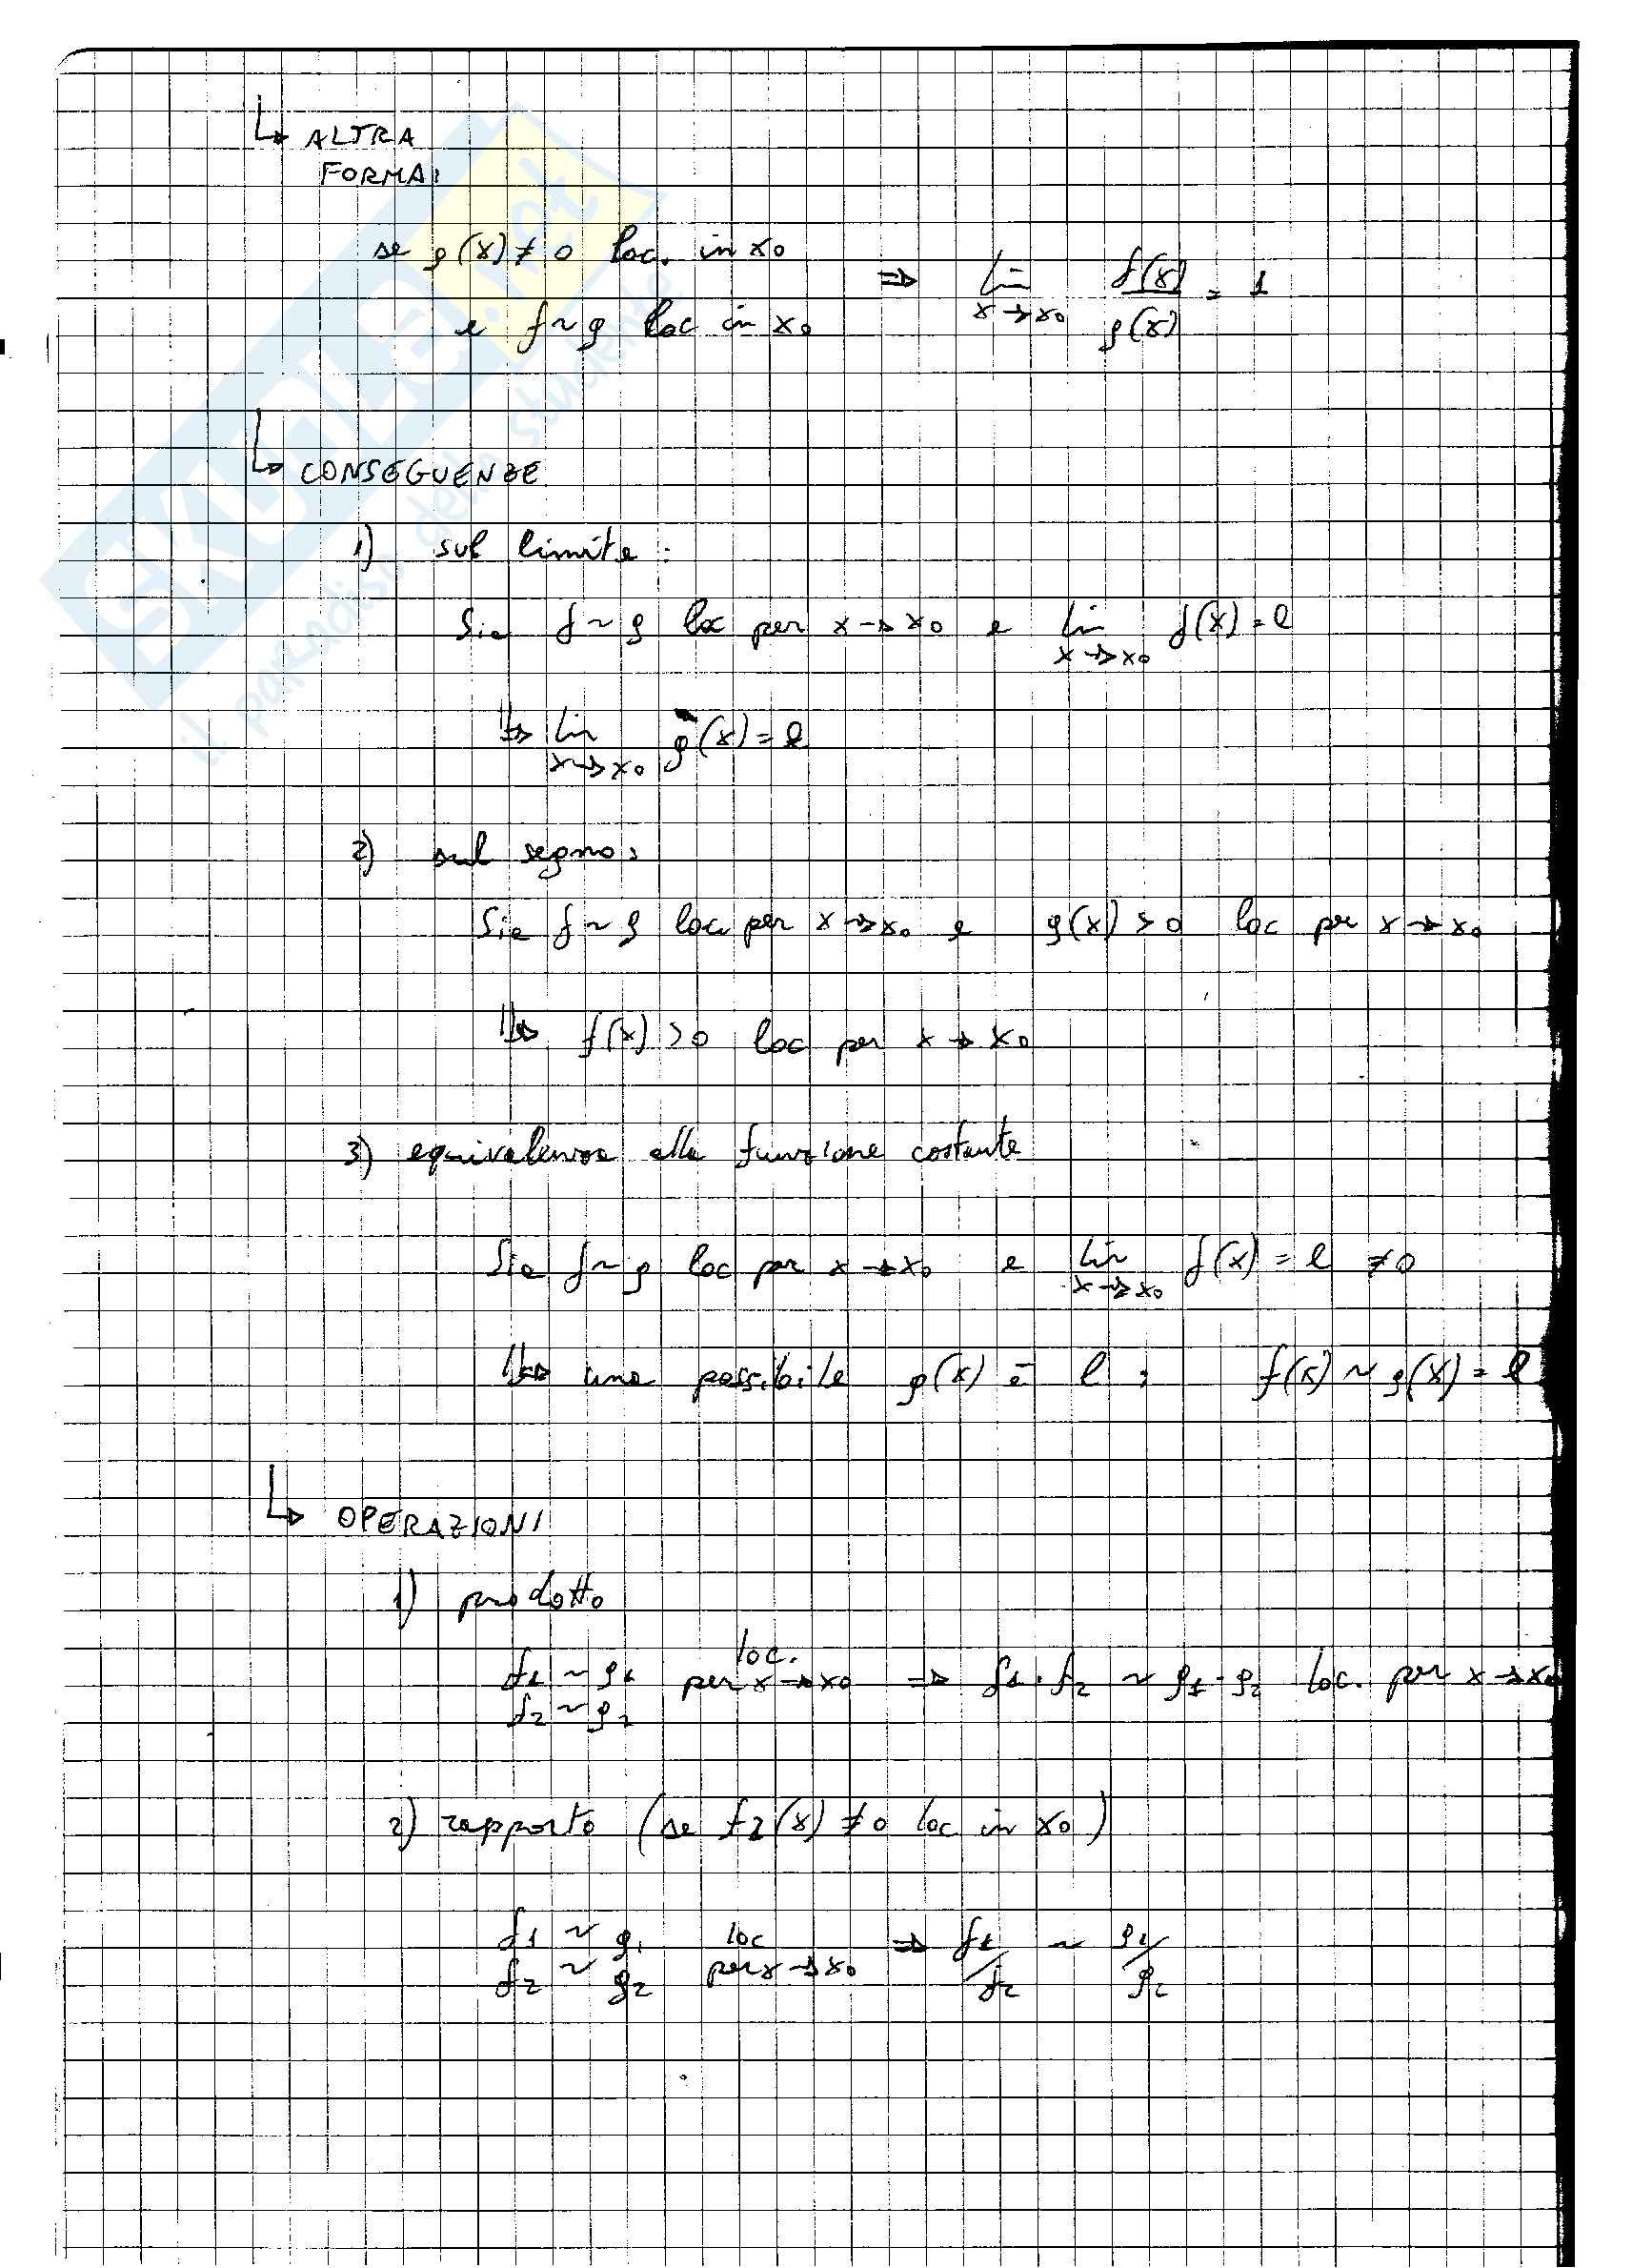 ↳ ALTRA
FORMA:
se g(x) ≠ 0 loc. in x₀
e f ~ g loc in x₀ ⇒ lim x→x₀ f(x)/g(x) = 1
↳ CONSEGUENZE
1) sul limite:
Sia f ~ g loc per x→x₀ e lim x→x₀ f(x) = l
↳ lim x→x₀ g(x) = l
2) sul segno:
Sia f ~ g loc per x→x₀ e g(x) > 0 loc per x→x₀
↳ f(x) > 0 loc per x→x₀
3) equivalenza alla funzione costante
Sia f ~ g loc per x→x₀ e lim x→x₀ f(x) = l ≠ 0
↳ una possibile g(x) è l ; f(x) ~ g(x) = l
↳ OPERAZIONI
1) prodotto
f₁ ~ g₁
f₂ ~ g₂ loc. per x→x₀ ⇒ f₁ · f₂ ~ g₁ · g₂ loc. per x→x₀
2) rapporto (se f₂(x) ≠ 0 loc in x₀)
f₁ ~ g₁
f₂ ~ g₂ loc per x→x₀ ⇒ f₁/f₂ ~ g₁/g₂
SKUOLA.net
il paradiso dello studente